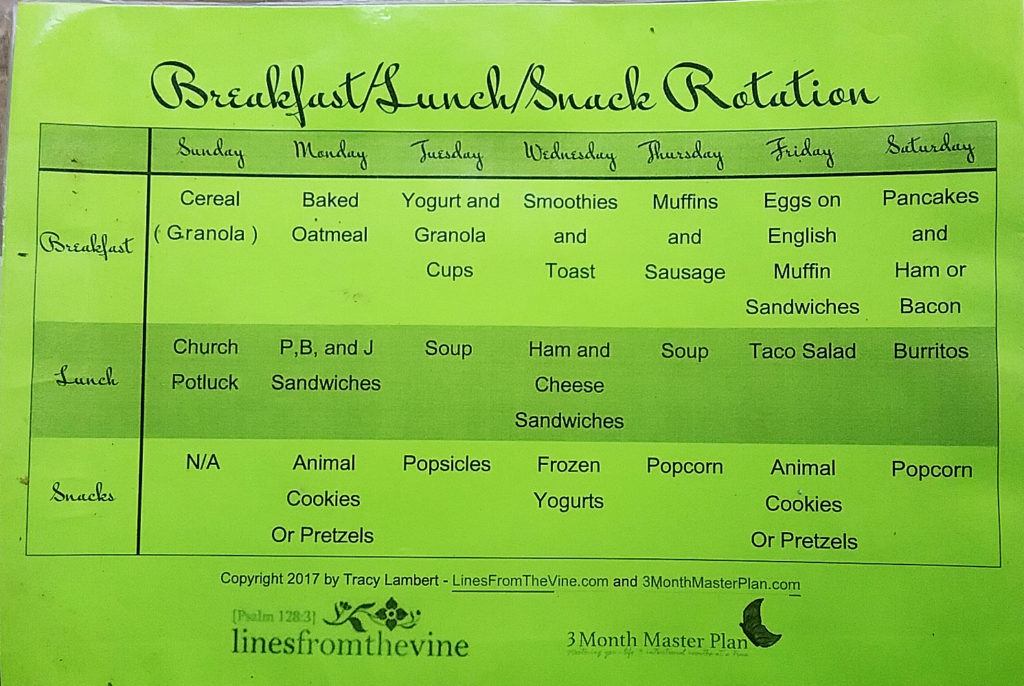 Breakfast/Lunch/Snack Rotation
Sunday Monday Tuesday Wednesday Thursday Friday Saturday
Breakfast
Cereal
( Granola )
Baked
Oatmeal
Yogurt and
Granola
Cups
Smoothies
and
Toast
Muffins
and
Sausage
Eggs on
English
Muffin
Sandwiches
Pancakes
and
Ham or
Bacon
Lunch
Church
Potluck
P,B, and J
Sandwiches
Soup
Ham and
Cheese
Sandwiches
Soup
Taco Salad
Burritos
Snacks
N/A
Animal
Cookies
Or Pretzels
Popsicles
Frozen
Yogurts
Popcorn
Animal
Cookies
Or Pretzels
Popcorn
Copyright 2017 by Tracy Lambert - LinesFromTheVine.com and 3MonthMasterPlan.com
[Psalm 128:3]
linesfromthevine
3 Month Master Plan